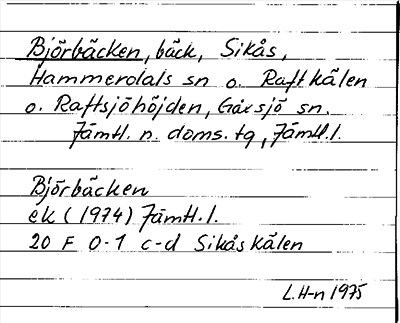 Björbäcken, bäck, Sikås,
Hammerdals sn o. Raftkälen
o. Raftsjöhöjden, Gåxsjö sn.
Jämtl. n. doms. tg, Jämtl.l.
Björbäcken
ek (1974) Jämtl.l.
20 F 0-1 c-d Sikåskälen
L.H-n 1975